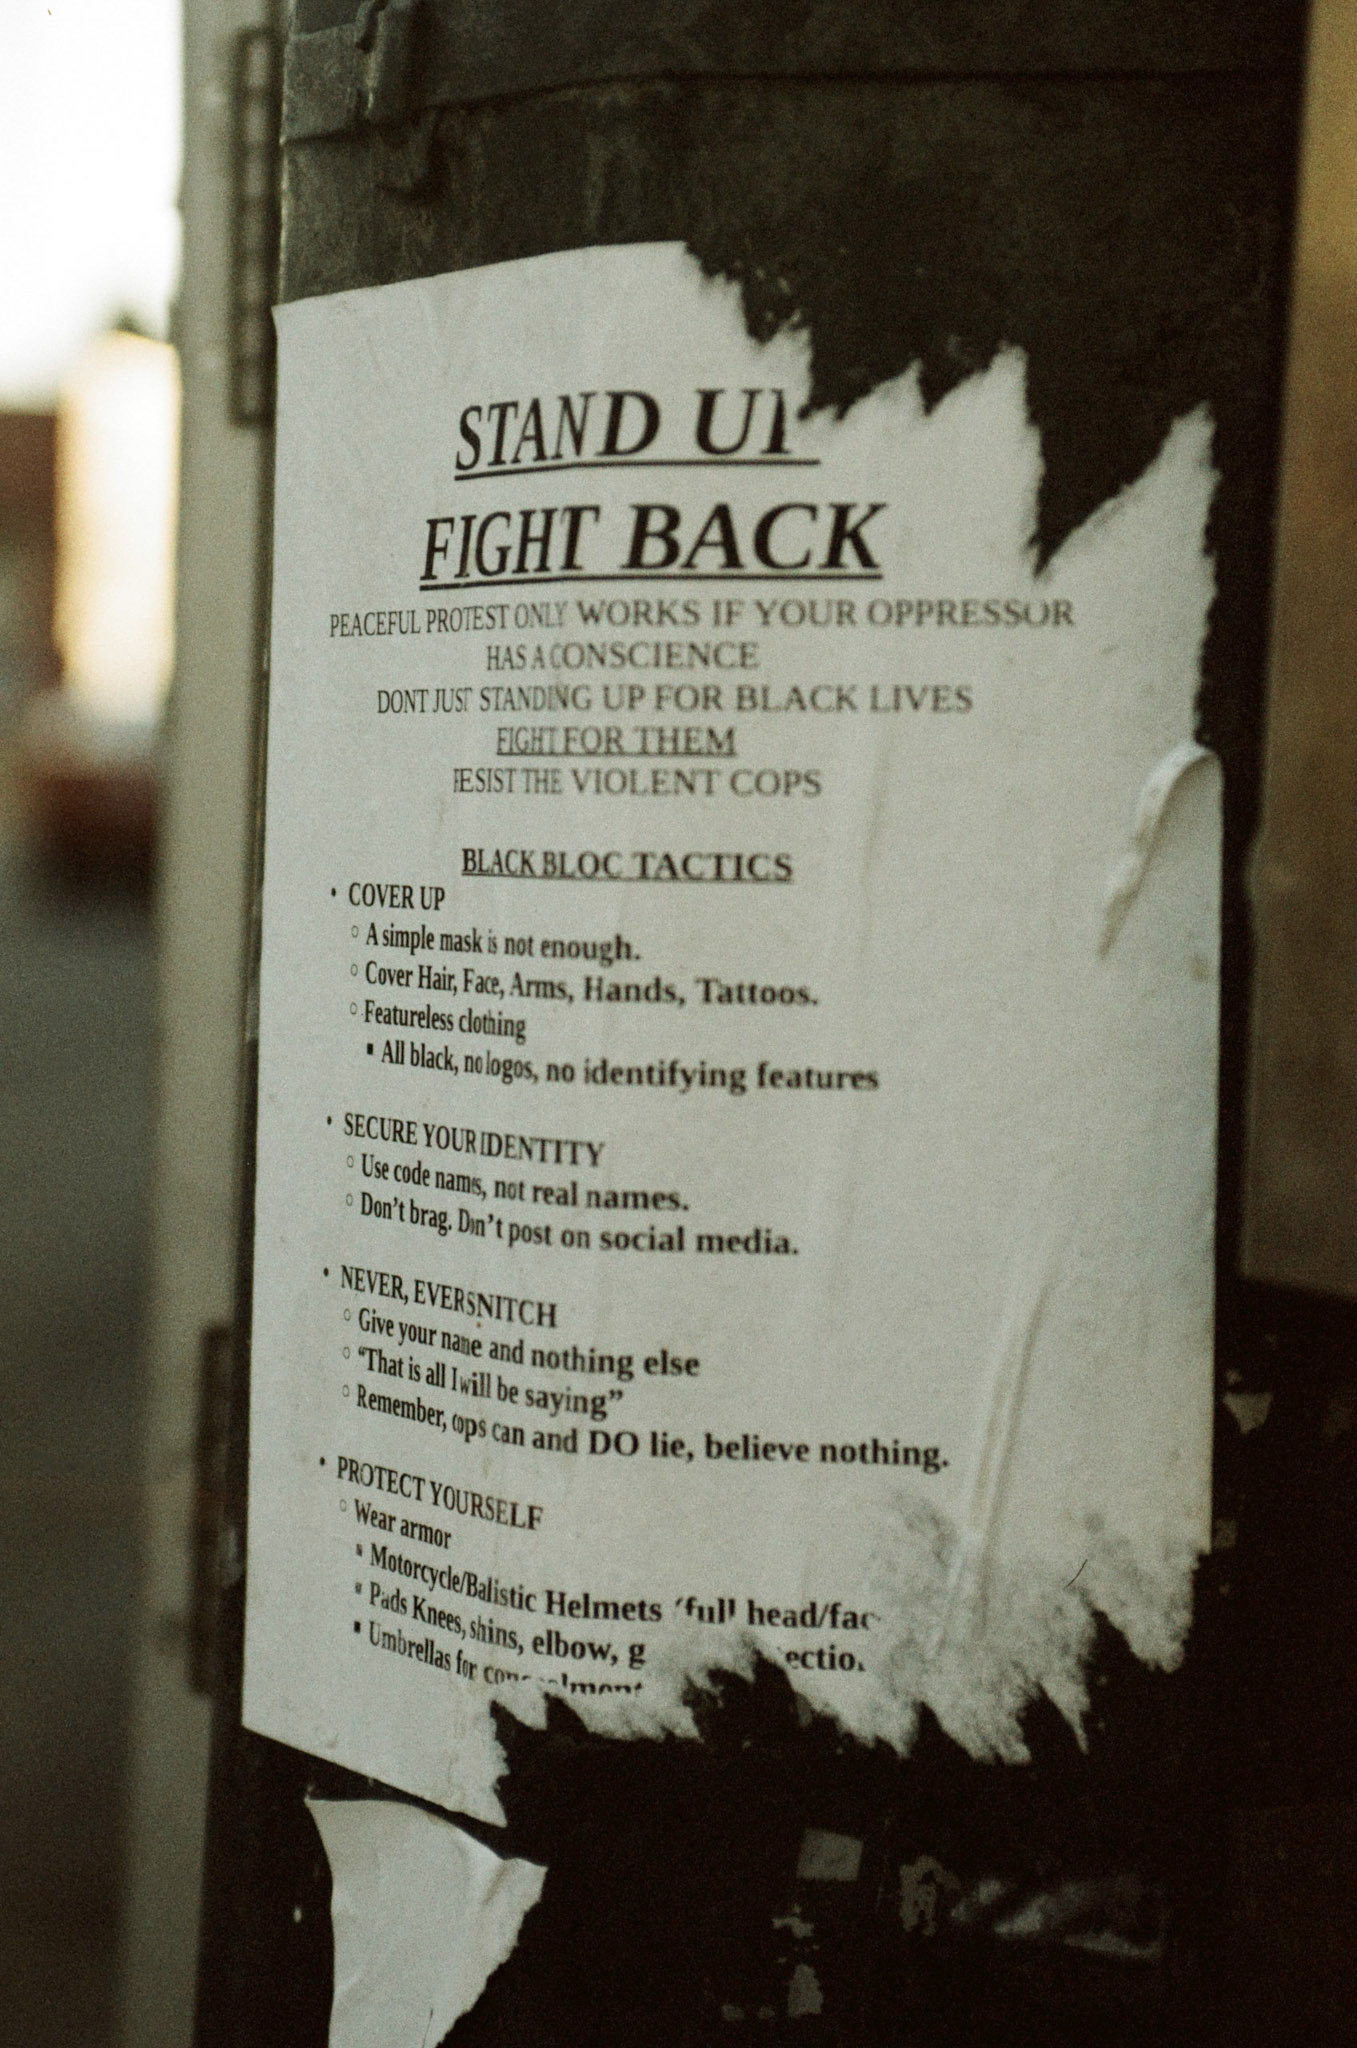 STAND
FIGHT BACK
PEACEFUL PROTEST ONLY WORKS IF YOUR OPPRESSOR
HAS A CONSCIENCE
DONT JUST STANDING UP FOR BLACK LIVES
FIGHT FOR THEM
RESIST THE VIOLENT COPS
BLACK BLOC TACTICS
• COVER UP
○ A simple mask is not enough.
○ Cover Hair, Face, Arms, Hands, Tattoos.
○ Featureless clothing
▪ All black, no logos, no identifying features
• SECURE YOUR IDENTITY
○ Use code names, not real names.
○ Don't brag. Don't post on social media.
• NEVER, EVER SNITCH
○ Give your name and nothing else
○ "That is all I will be saying"
○ Remember, cops can and DO lie, believe nothing.
• PROTECT YOURSELF
○ Wear armor
▪ Motorcycle/Balistic Helmets full head/fac
▪ Pads Knees, shins, elbow,
▪ Umbrellas for